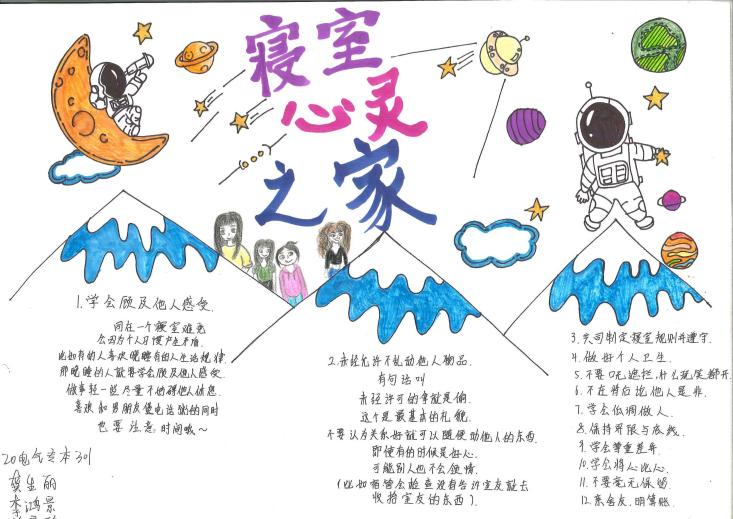 寝室
心灵
之家
1.学会顾及他人感受.
同在一个寝室难免
会因为个人习惯产生矛盾.
比如有的人喜欢晚睡有的人生活规律.
那晚睡的人就要学会顾及他人感受.
做事轻一些尽量不妨碍他人休息.
喜欢和男朋友煲电话粥的同时
也要注意时间哦~
2.未经允许不乱动他人物品.
有句话叫
未经许可的拿就是偷.
这个是最基本的礼貌.
不要认为关系好就可以随便动他人的东西.
即使有的时候是好心.
可能别人也不会领情.
(比如宿管会检查没有告诉室友就去
收拾室友的东西).
3.共同制定寝室规则并遵守.
4.做好个人卫生.
5.不要口无遮拦,什么玩笑都开.
6.不在背后论他人是非.
7.学会低调做人.
8.保持界限与底线.
9.学会尊重差异.
10.学会将心比心.
11.不要毫无保留
12.亲舍友,明算账.
20电气专本301
李鸿景